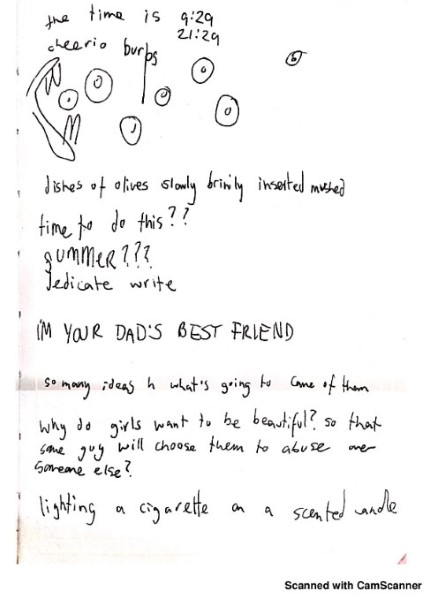 the time is 9:29
21:29
cheerio burps
dishes of olives slowly brinily inserted mushed
time to do this??
SUMMER???
dedicate write
I'M YOUR DAD'S BEST FRIEND
so many ideas h what's going to come of them
why do girls want to be beautiful? so that
some guy will choose them to abuse over
someone else?
lighting a cigarette on a scented candle
Scanned with CamScanner